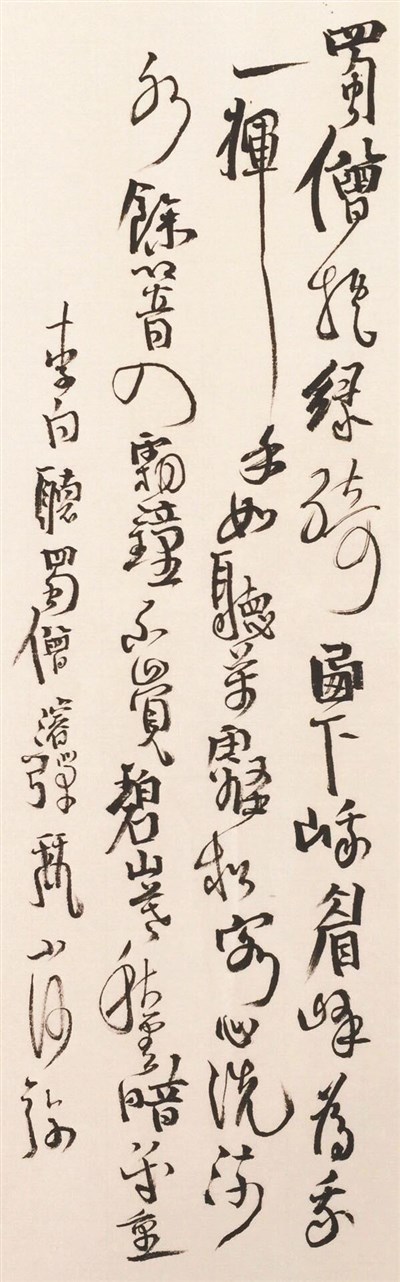 蜀僧抱綠綺西下峨眉峰為我
一揮手如聽萬壑松客心洗流
水餘響入霜鐘不覺碧山暮秋雲暗幾重
李白聽蜀僧濬彈琴